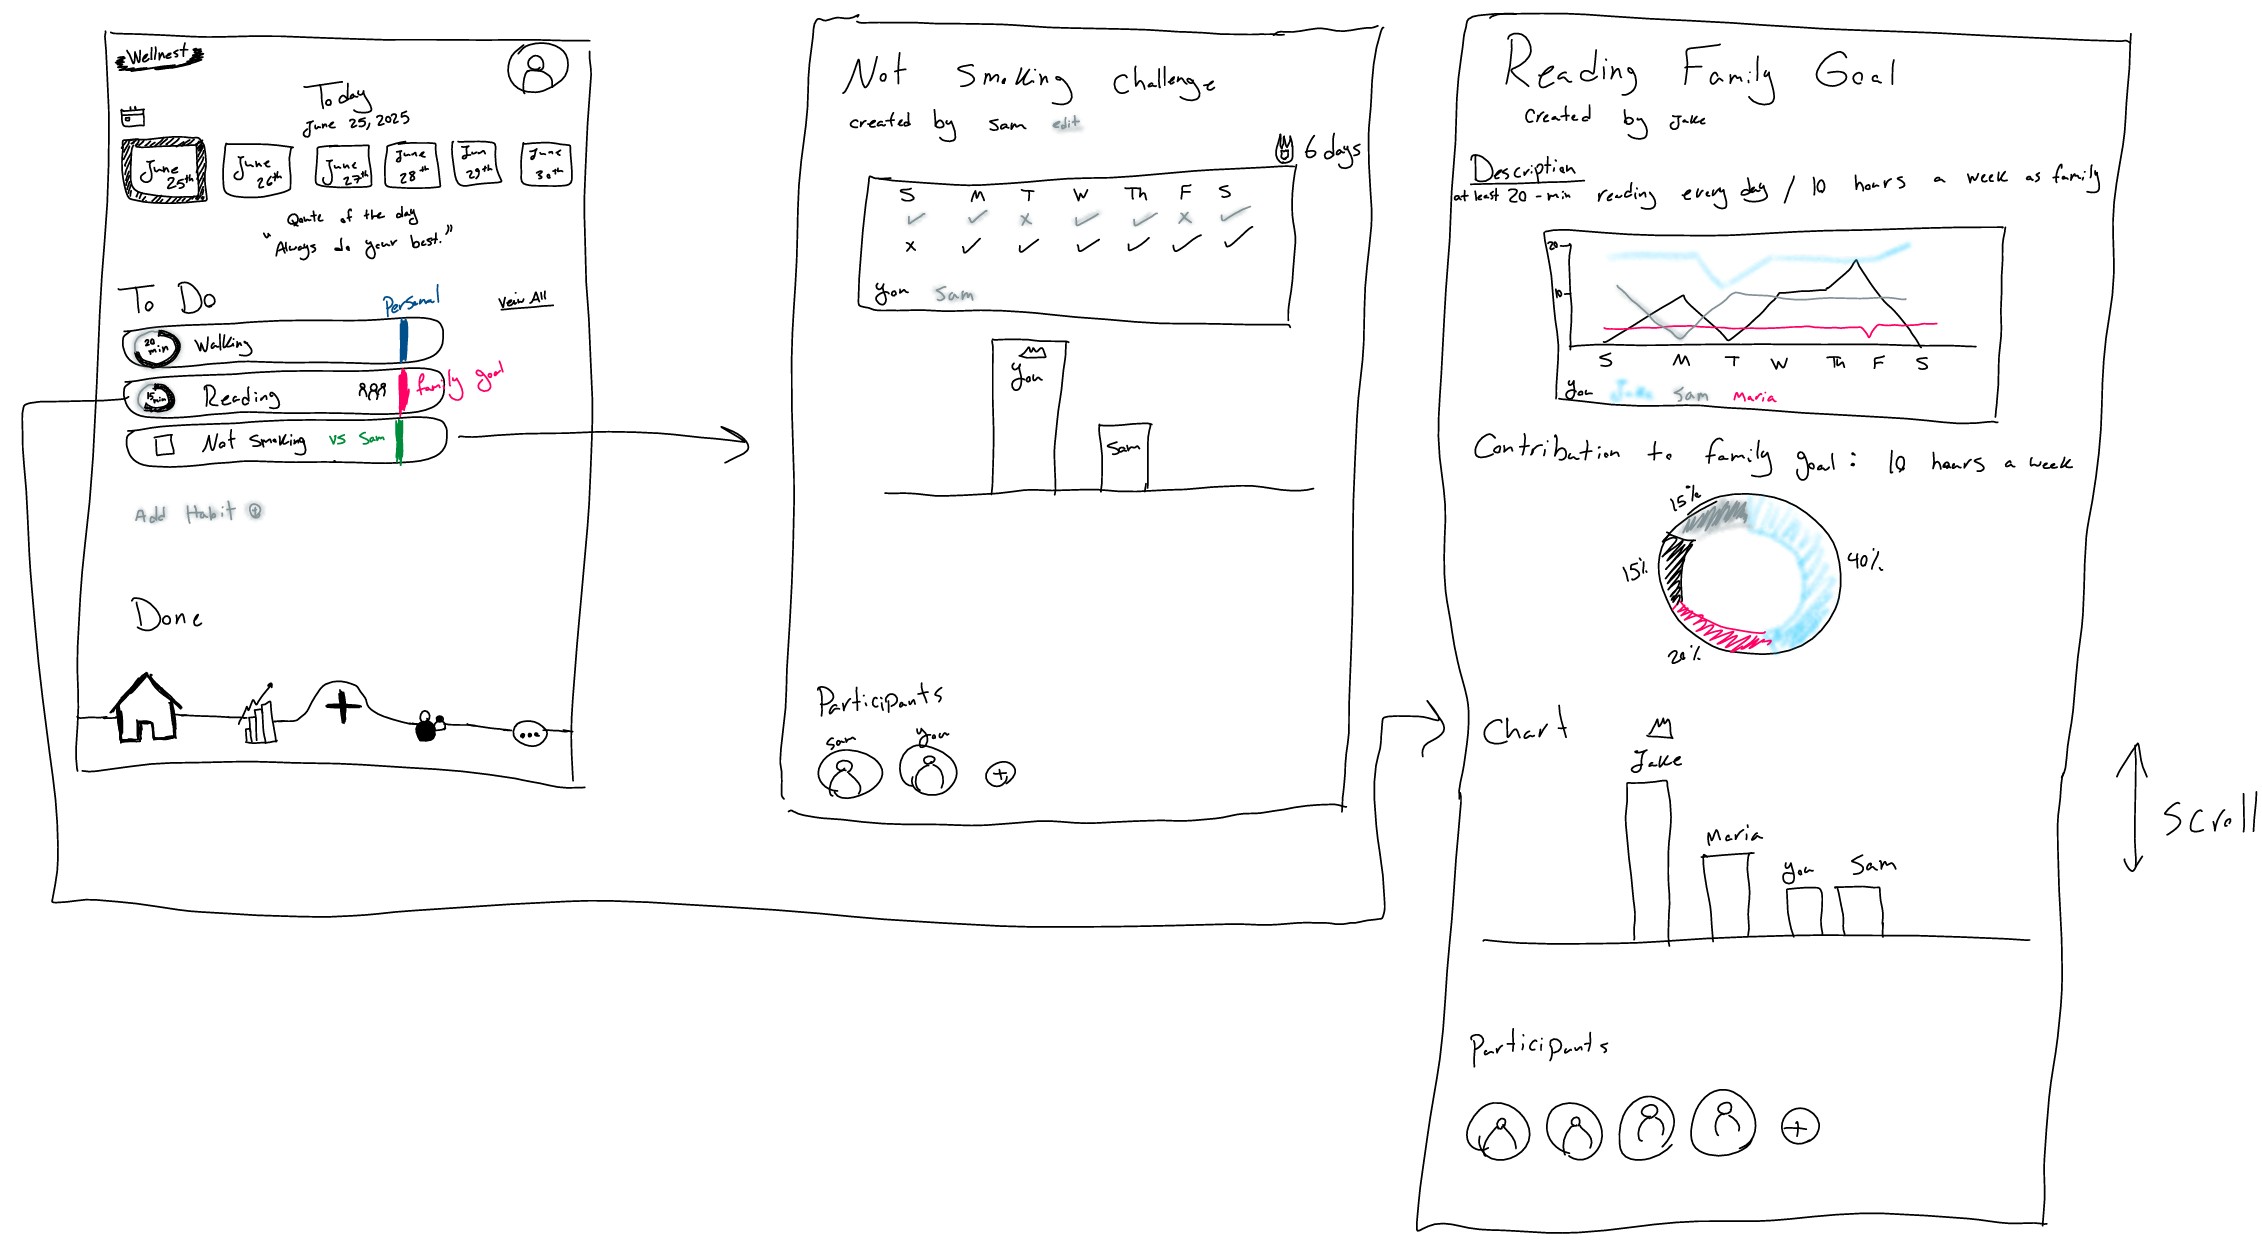 Wellnest
Today
June 25, 2025
June 25th
June 26th
June 27th
June 28th
Jun 29th
June 30th
Quote of the day
"Always do your best."
To Do
Personal
Veiw All
20 min Walking
15 min Reading
family goal
Not Smoking vs Sam
Add Habit +
Done
+
Not Smoking Challenge
created by Sam edit
6 days
S M T W Th F S
✓ ✓ x ✓ ✓ x ✓
x ✓ ✓ ✓ ✓ ✓ ✓
you Sam
you
Sam
Participants
sam you
+
Reading Family Goal
created by Jake
Description
at least 20-min reading every day / 10 hours a week as family
20
10
S M T W Th F S
you Jake Sam Maria
Contribution to family goal: 10 hours a week
15%
40%
15%
20%
Chart
Jake
Maria
you Sam
Participants
+
Scroll